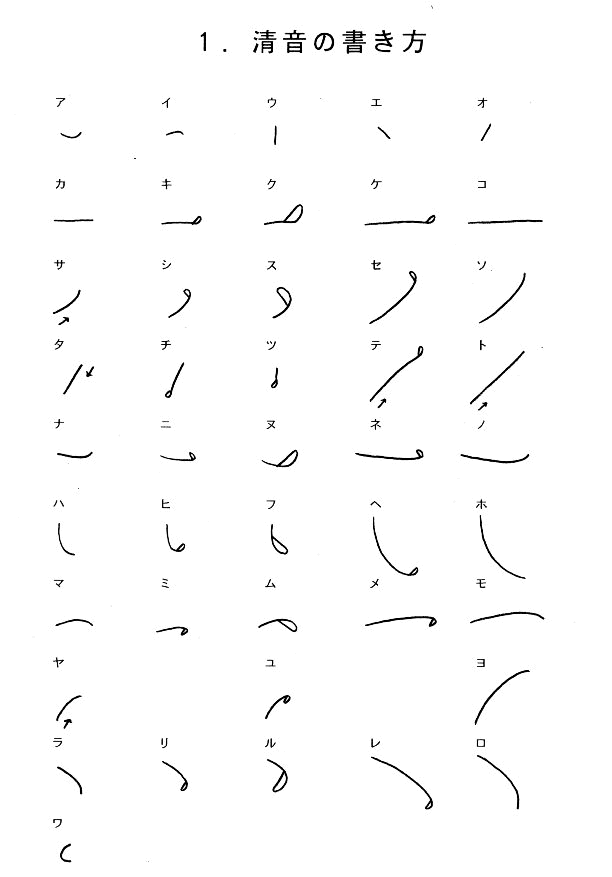 1. 清音の書き方
ア イ ウ エ オ
カ キ ク ケ コ
サ シ ス セ ソ
タ チ ツ テ ト
ナ ニ ヌ ネ ノ
ハ ヒ フ ヘ ホ
マ ミ ム メ モ
ヤ ユ ヨ
ラ リ ル レ ロ
ワ